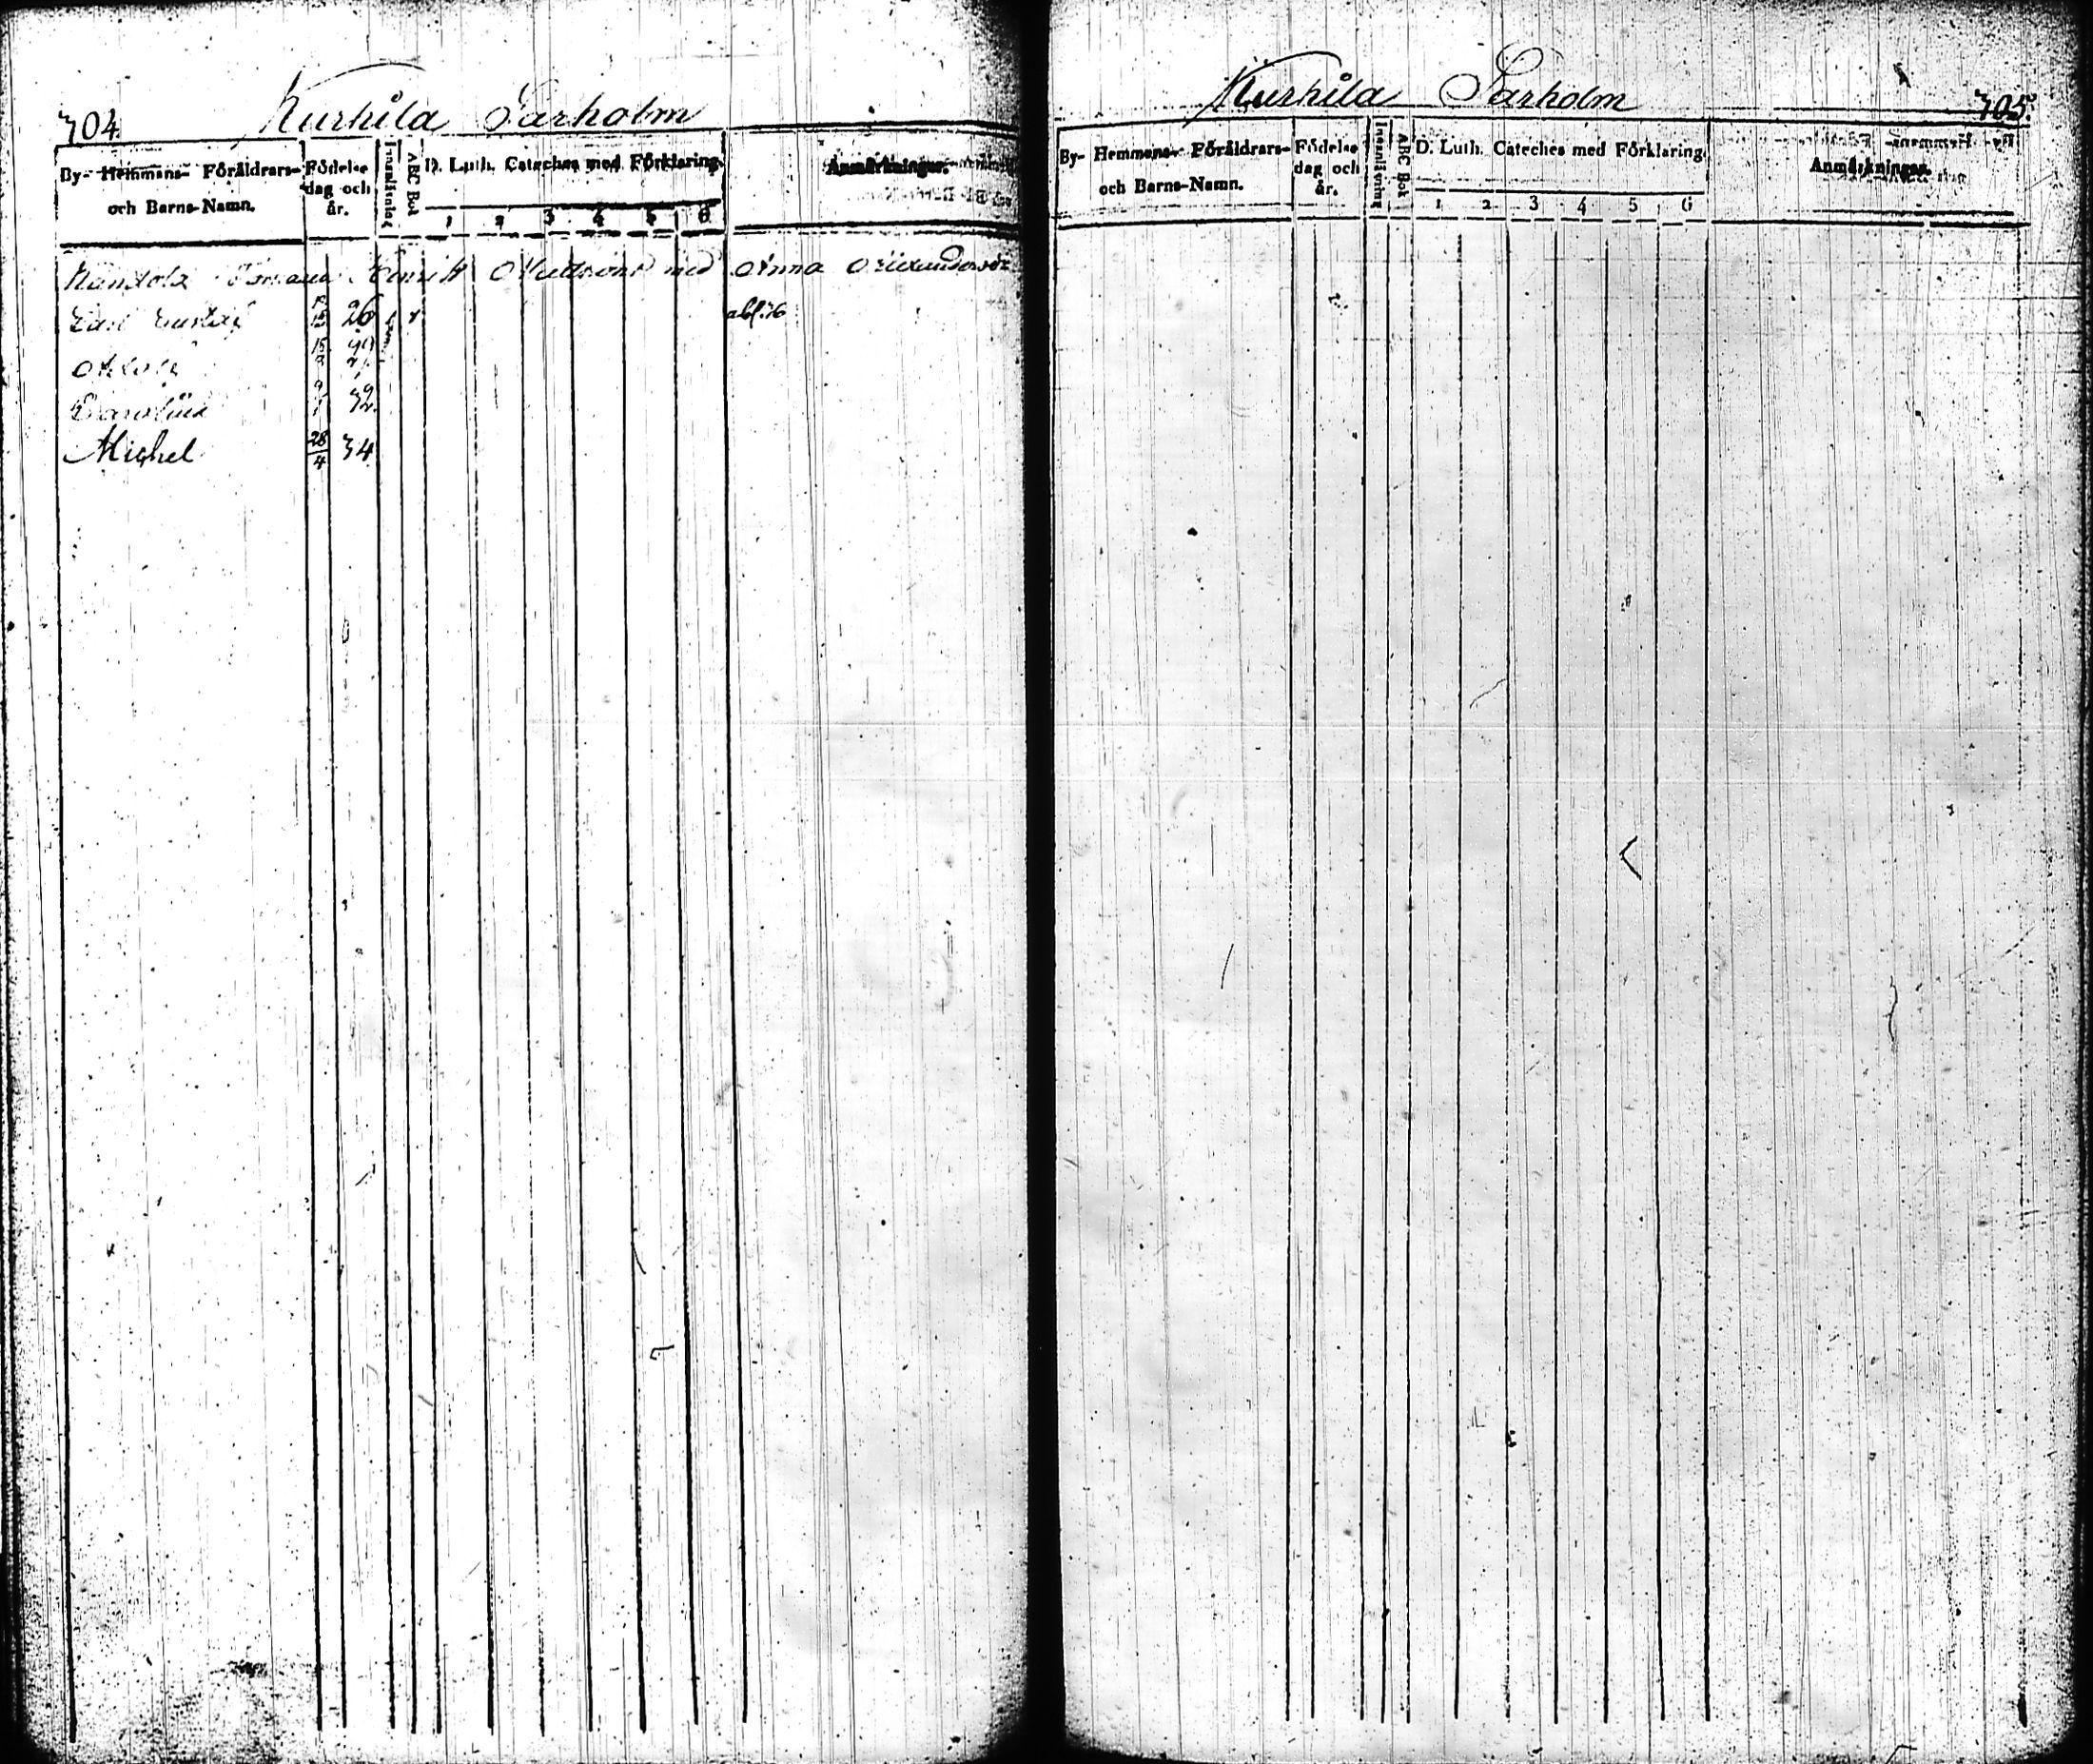 704 Kurhila Sarholm
By- Hemmans- Föräldrars- och Barns-Namn. Födelse dag och år. Innanläsning ABC Bok D. Luth. Cateches med Förklaring. Anmärkningar.
1 2 3 4 5 6
Henrik med Anna
Carl Gustaf 26 abf. 36
15
Carolina 9 32
Michel 28/4 34
Kurhila Sarholm 705.
By- Hemmans- Föräldrars- och Barns-Namn. Födelse dag och år. Innanläsning ABC Bok D. Luth. Cateches med Förklaring. Anmärkningar.
1 2 3 4 5 6